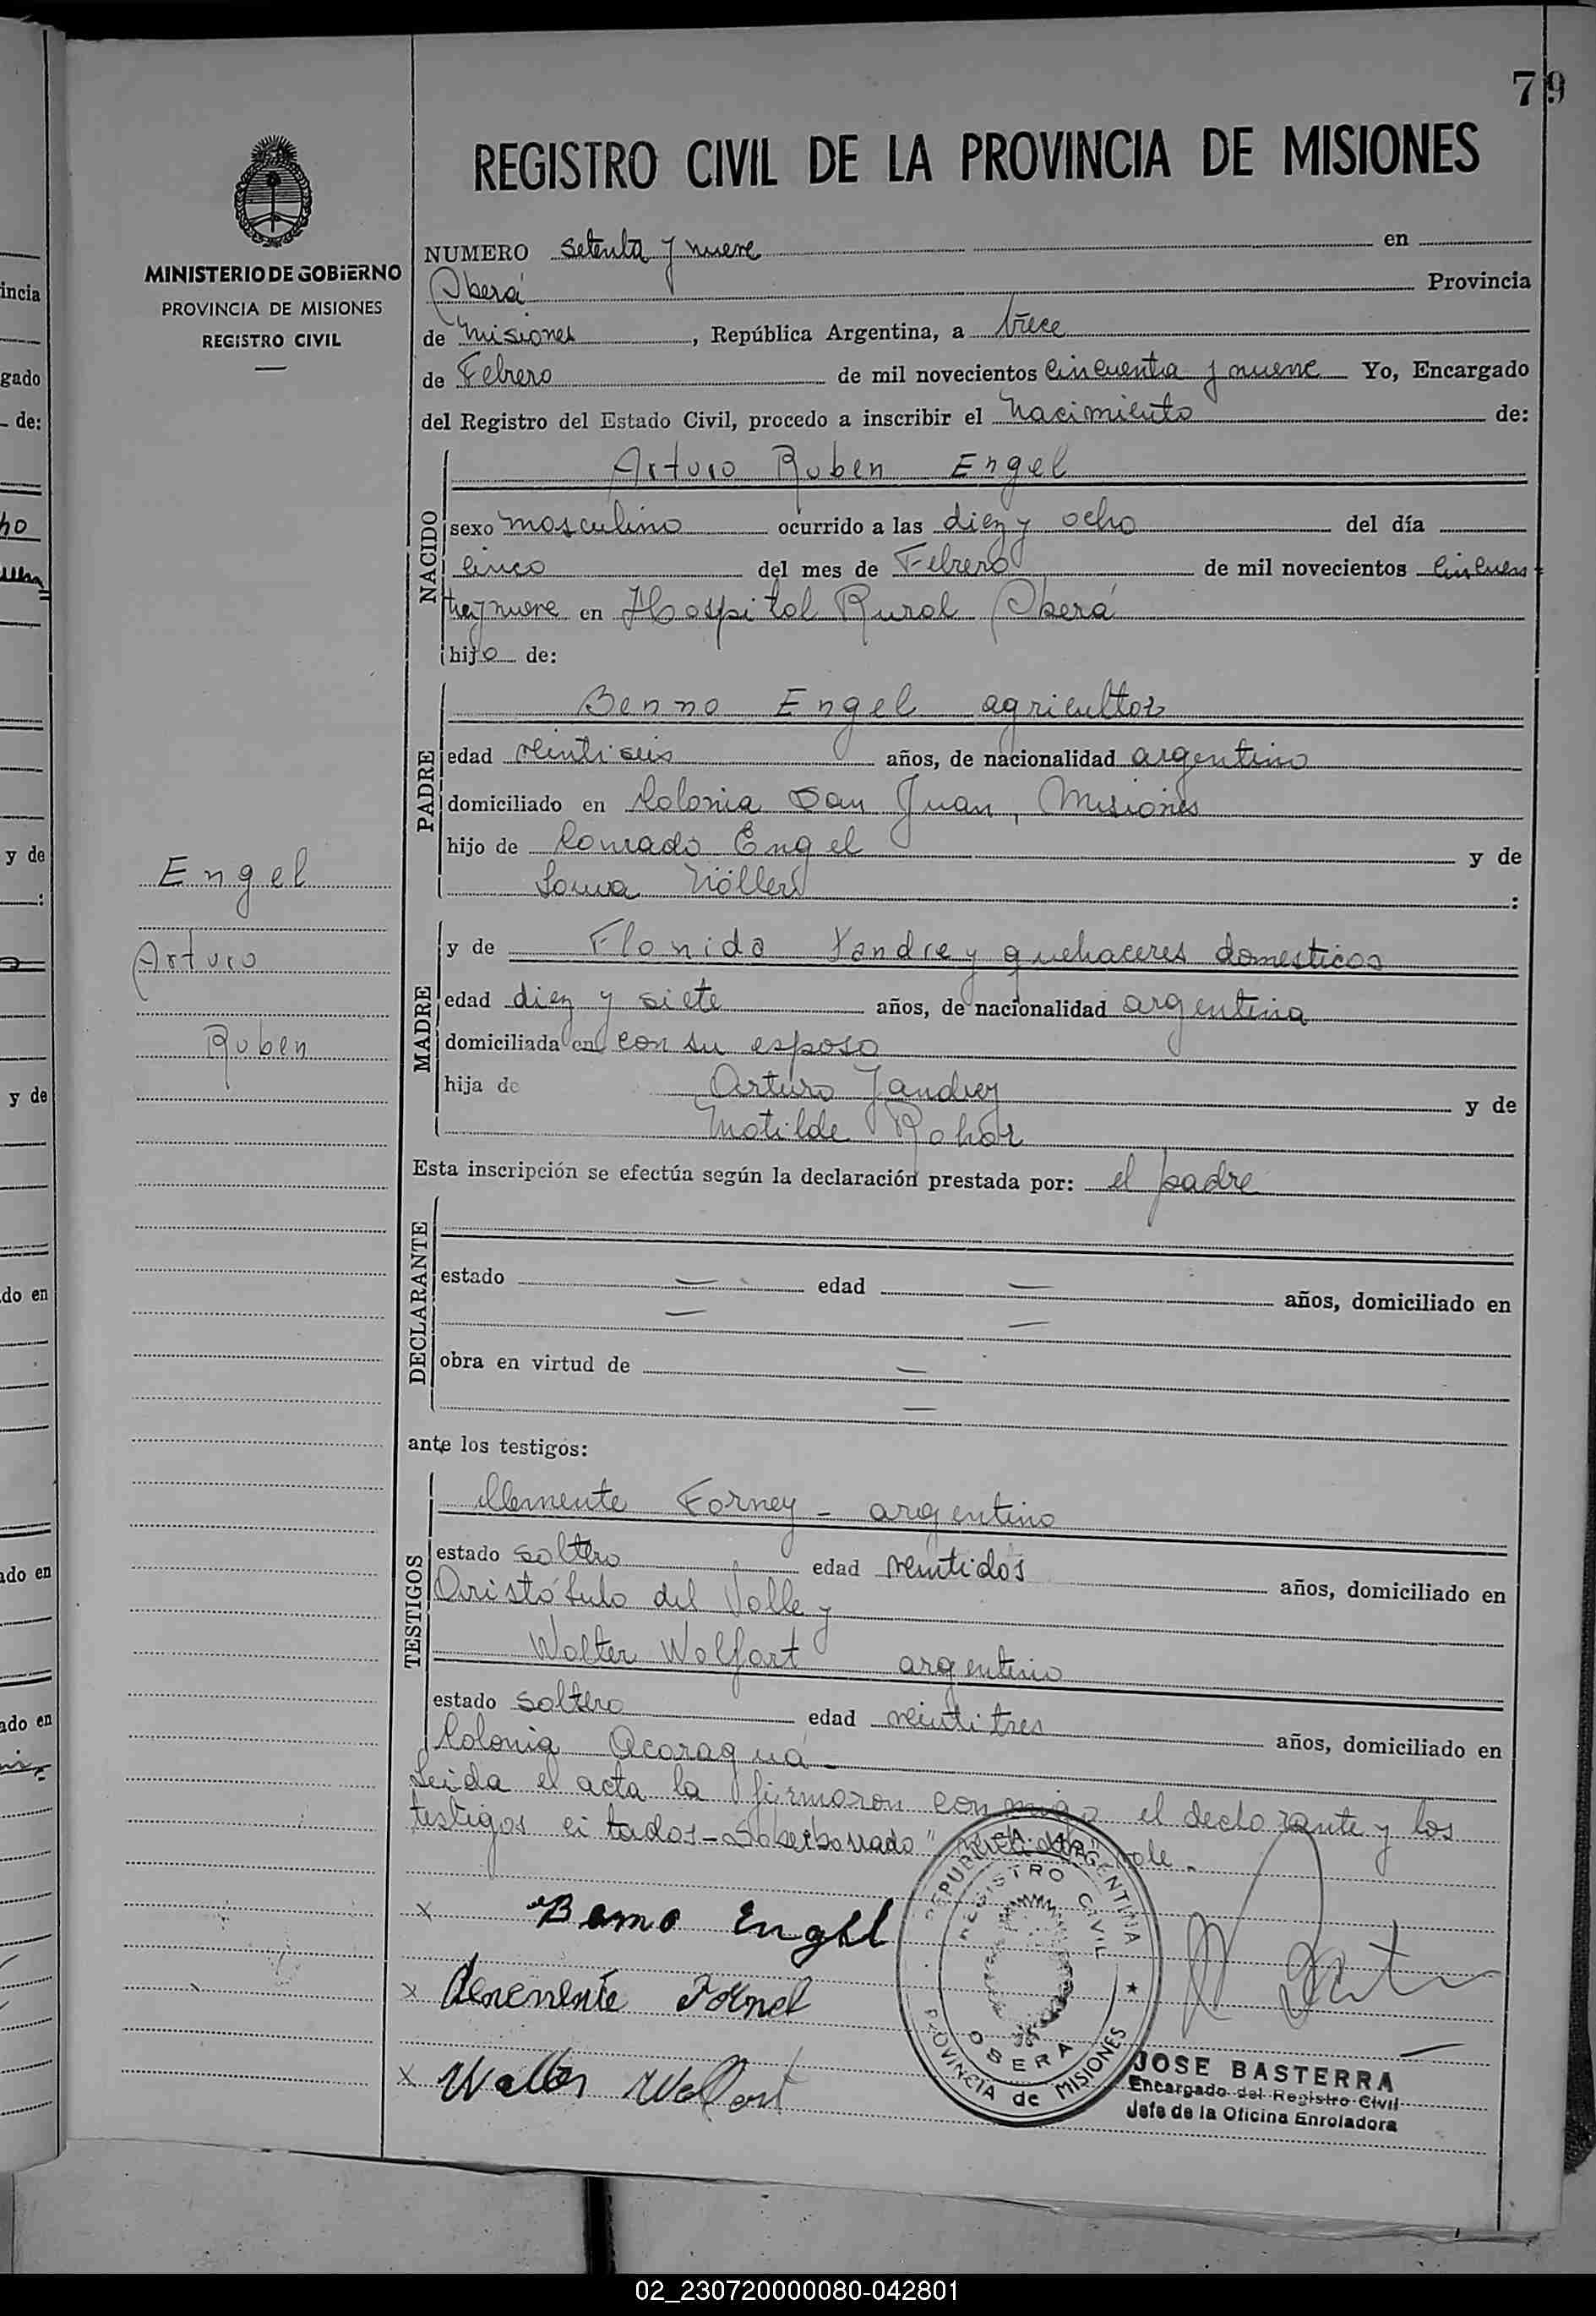 79
REGISTRO CIVIL DE LA PROVINCIA DE MISIONES
MINISTERIO DE GOBIERNO
PROVINCIA DE MISIONES
REGISTRO CIVIL
NUMERO setenta y nueve en
Oberá Provincia
de Misiones, República Argentina, a trece
de Febrero de mil novecientos cincuenta y nueve Yo, Encargado
del Registro del Estado Civil, procedo a inscribir el nacimiento de:
NACIDO
Arturo Ruben Engel
sexo masculino ocurrido a las diez y ocho del día
cinco del mes de Febrero de mil novecientos cincuen
ta y nueve en Hospital Rural Oberá
hijo de:
PADRE
Benno Engel agricultor
edad veintiseis años, de nacionalidad argentino
domiciliado en Colonia San Juan, Misiones
hijo de Conrado Engel y de
:
Engel
Arturo
Ruben
MADRE
y de Flonida Yandrey quehaceres domesticos
edad diez y siete años, de nacionalidad argentina
domiciliada en con su esposo
hija de Arturo Jandrey y de
Matilde
Esta inscripción se efectúa según la declaración prestada por: el padre
DECLARANTE
estado — edad — años, domiciliado en
— —
obra en virtud de —
—
ante los testigos:
TESTIGOS
Clemente Forney - argentino
estado soltero edad veintidos años, domiciliado en
Aristóbulo del Valle y
Walter Wolfart argentino
estado soltero edad veintitres años, domiciliado en
Colonia Acaragua -
Leida el acta la firmaron conmigo el declarante y los
testigos citados - vale.
x Benno Engel
x
x Walter Wolfart
REPUBLICA ARGENTINA
REGISTRO CIVIL
OBERA
PROVINCIA de MISIONES
JOSE BASTERRA
Encargado del Registro Civil
Jefe de la Oficina Enroladora
incia
gado
de:
ho
y de
:
y de
do en
ado en
ado en
02_230720000080-042801